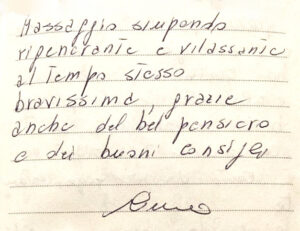 Massaggio stupendo
rigenerante e rilassante
al tempo stesso
bravissima, grazie
anche del bel pensiero
e dei buoni consigli